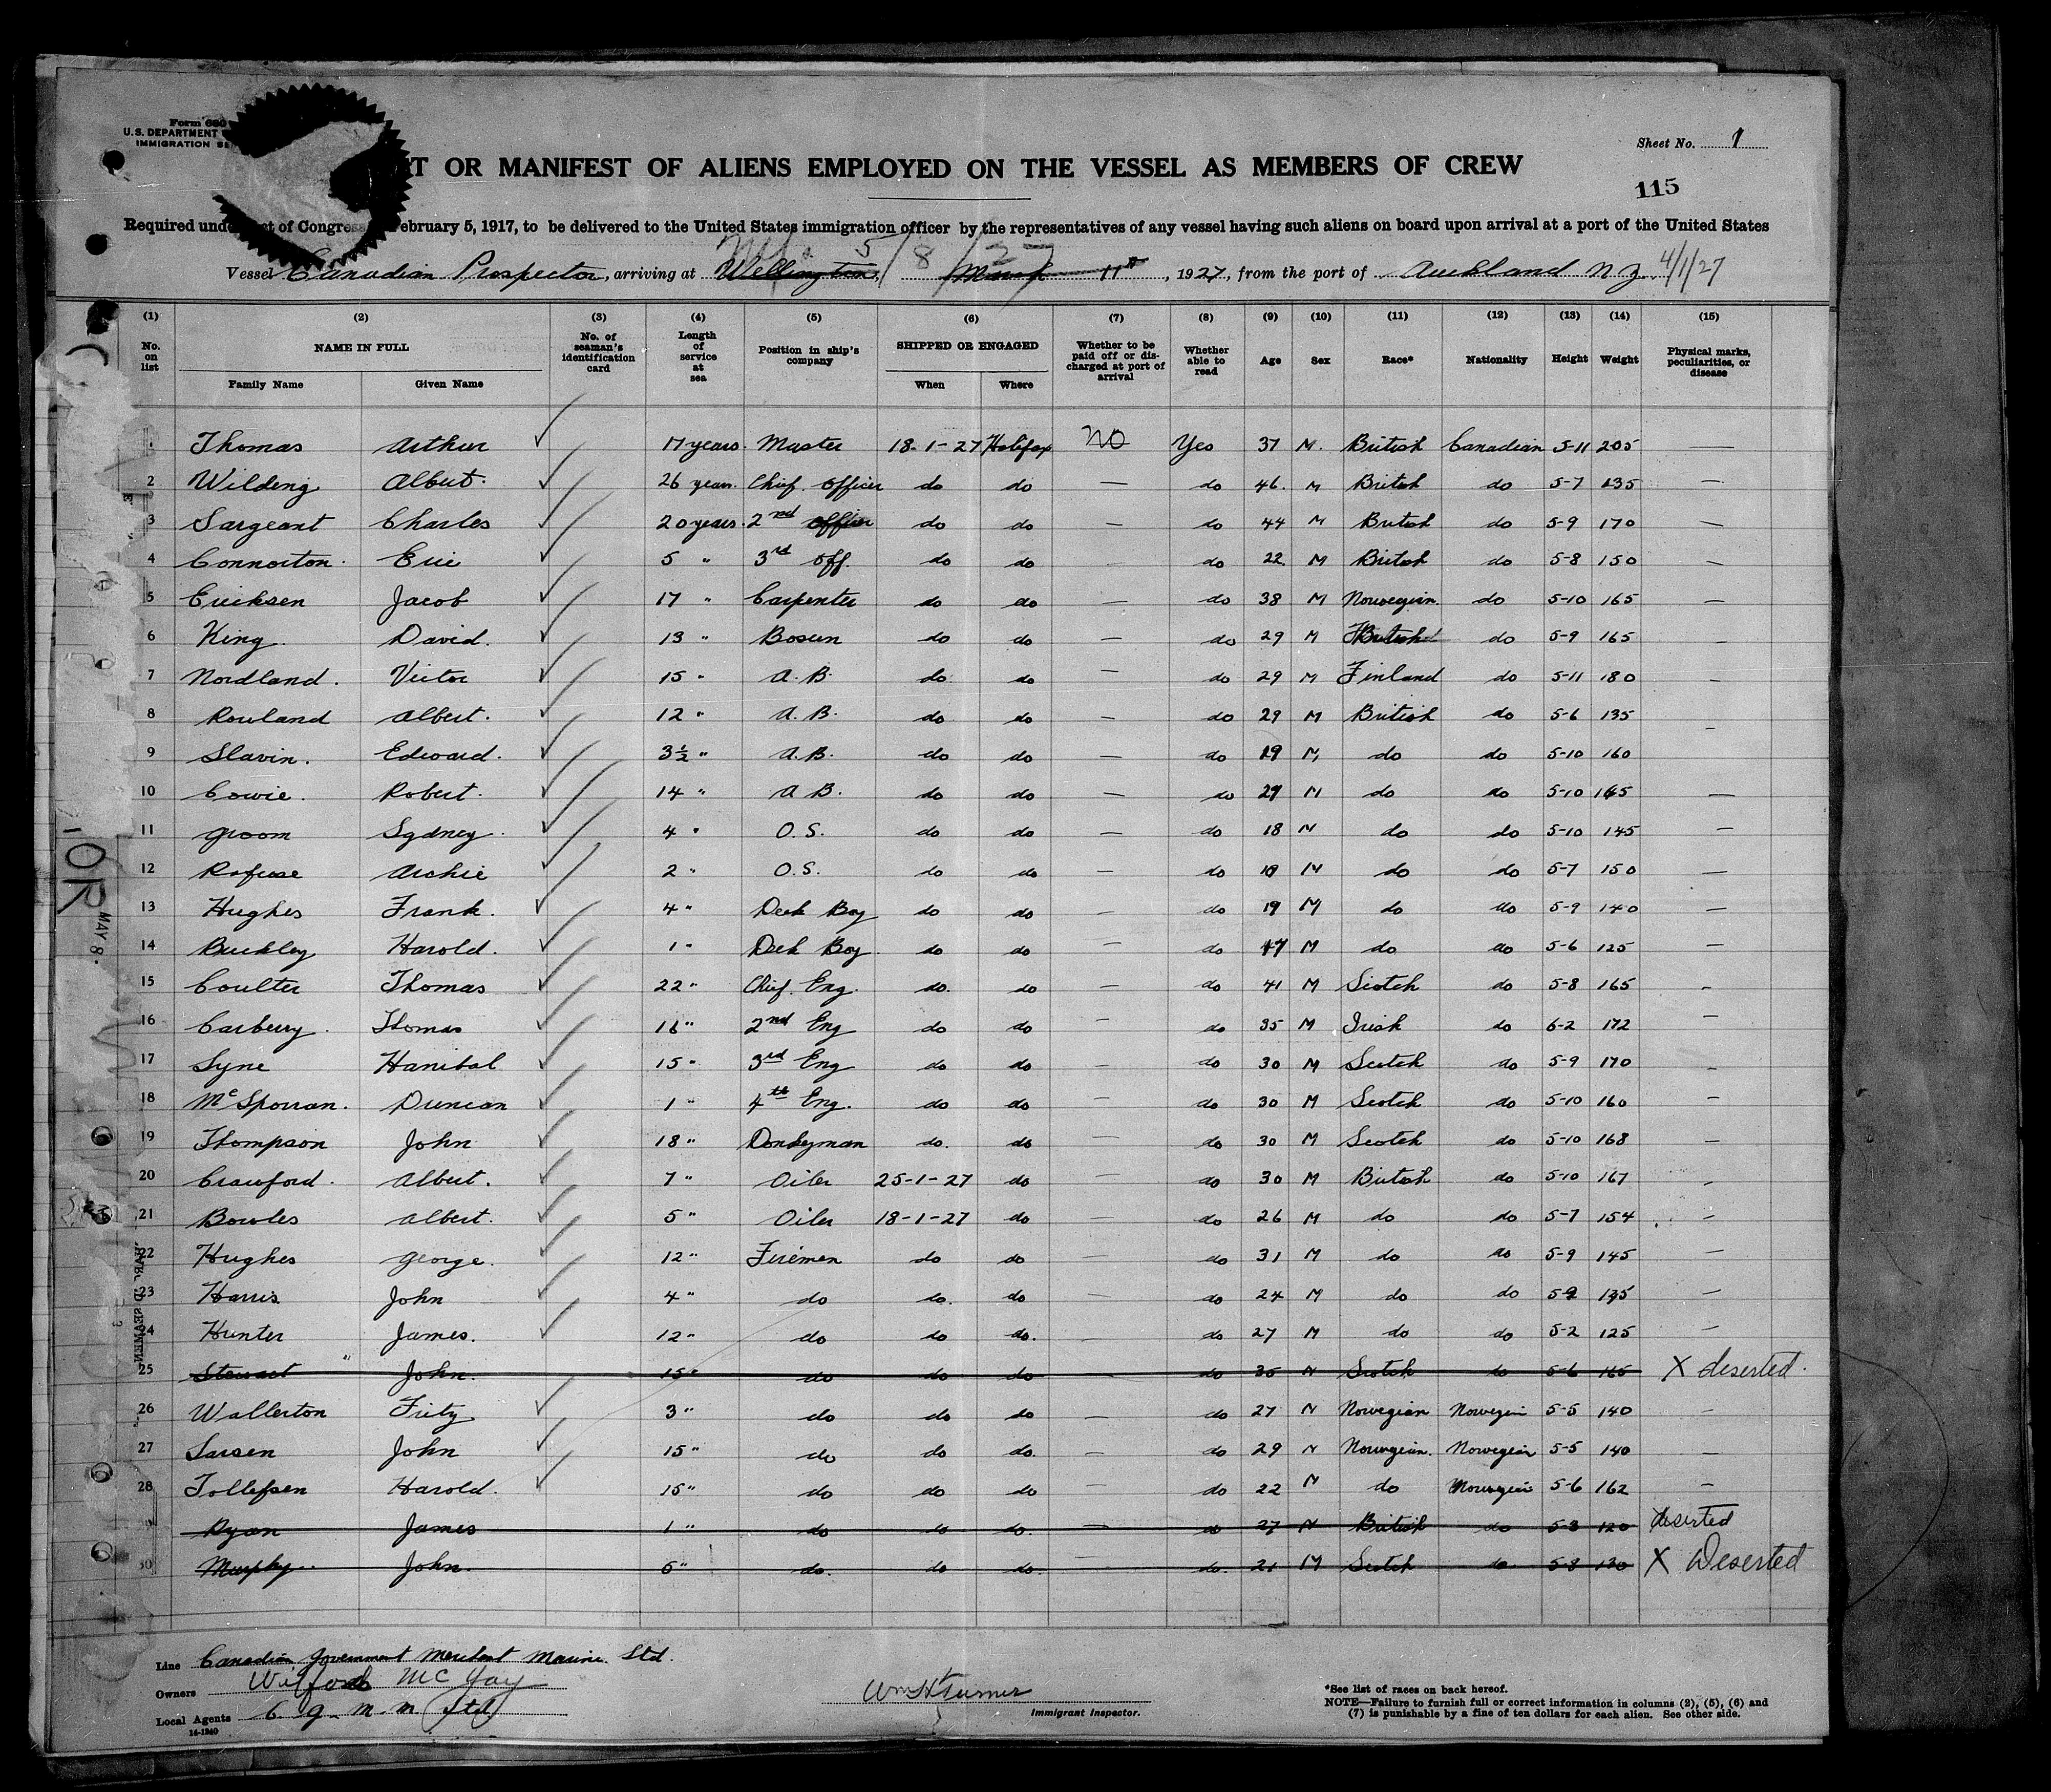 Form 680
U.S. DEPARTMENT
IMMIGRATION SE
Sheet No. 1
T OR MANIFEST OF ALIENS EMPLOYED ON THE VESSEL AS MEMBERS OF CREW
115
Required und ct of Congress February 5, 1917, to be delivered to the United States immigration officer by the representatives of any vessel having such aliens on board upon arrival at a port of the United States
5/8/27
Vessel Canadian Prospector, arriving at Wellington, March 11th, 1927, from the port of Auckland N Z. 4/1/27
(1) (2) (3) (4) (5) (6) (7) (8) (9) (10) (11) (12) (13) (14) (15)
No. on list NAME IN FULL Family Name Given Name No. of seaman's identification card Length of service at sea Position in ship's company SHIPPED OR ENGAGED When Where Whether to be paid off or discharged at port of arrival Whether able to read Age Sex Race* Nationality Height Weight Physical marks, peculiarities, or disease
1 Thomas Arthur 17 years. Master 18-1-27 Halifax NO Yes 37 M. British Canadian 5-11 205 —
2 Wilding Albert. 26 years. Chief Officer do do — do 46. M British do 5-7 135 —
3 Sargeant Charles 20 years. 2nd officer do do — do 44 M British do 5-9 170 —
4 Connorton. Eric 5 " 3rd off. do do do 22 M British do 5-8 150 —
5 Ericksen Jacob 17 " Carpenter do do — do 38 M Norwegian. do 5-10 165 —
6 King. David. 13 " Bosun do do — do 29 M British do 5-9 165 —
7 Nordland. Victor 15 " A.B. do do — do 29 M Finland do 5-11 180 —
8 Rowland Albert. 12 " A.B. do do — do 29 M British do 5-6 135 —
9 Slavin. Edward. 3½ " A.B. do do — do 19 M do do 5-10 160
10 Cowie. Robert. 14 " A B. do do — do 29 M do do 5-10 165 —
11 Groom Sydney. 4 " O.S. do do — do 18 M do do 5-10 145 —
12 Rafuse Archie 2 " O.S. do do — do 18 M do do 5-7 150 —
13 Hughes Frank. 4 " Deck Boy do do — do 19 M do do 5-9 140 —
14 Buckley Harold. 1 " Deck Boy. do do — do 17 M do do 5-6 125 —
15 Coulter Thomas 22 " Chief. Eng. do. do — do 41 M Scotch do 5-8 165 —
16 Carberry. Thomas 16 " 2nd Eng do do — do 35 M Irish do 6-2 172 —
17 Syne Hanibal 15 " 3rd Eng do do do 30 M Scotch do 5-9 170 —
18 McSporran. Duncan 1 " 4th Eng. do do — do 30 M Scotch do 5-10 160 —
19 Thompson John 18 " Donkeyman do. do — do 30 M Scotch do 5-10 168 —
20 Crawford. Albert. 7 " Oiler 25-1-27 do — do 30 M British do 5-10 167 —
21 Bowles Albert. 5 " Oiler 18-1-27 do — do 26 M do do 5-7 154 —
22 Hughes George. 12 " Firemen do do — do 31 M do do 5-9 145 —
23 Harris John 4 " do do. do — do 24 M do do 5-9 135 —
24 Hunter James. 12 " do do do. — do 27 M do do 5-2 125 —
25 Stewart John. 15 " do do do do 35 M Scotch do 5-6 165 X deserted.
26 Wallerton Fritz 3 " do do do — do 27 M Norwegian Norwegian 5-5 140 —
27 Larsen John 15 " do do do. — do 29 M Norwegian. Norwegian 5-5 140 —
28 Tollefsen Harold. 15 " do do do — do 22 M do Norwegian 5-6 162 —
Ryan James 1 " do do do. — do 27 M British do 5-3 120 deserted
30 Murphy. John. 6 " do. do do. — do. 21 M Scotch do 5-8 130 X Deserted
MAY 8.
Line Canadian Government Merchant Marine. Ltd.
Owners Wilford McKay
Local Agents C. G. M. M (Ltd)
14-1240
Wm H Turner
Immigrant Inspector.
*See list of races on back hereof.
NOTE—Failure to furnish full or correct information in columns (2), (5), (6) and
(7) is punishable by a fine of ten dollars for each alien. See other side.